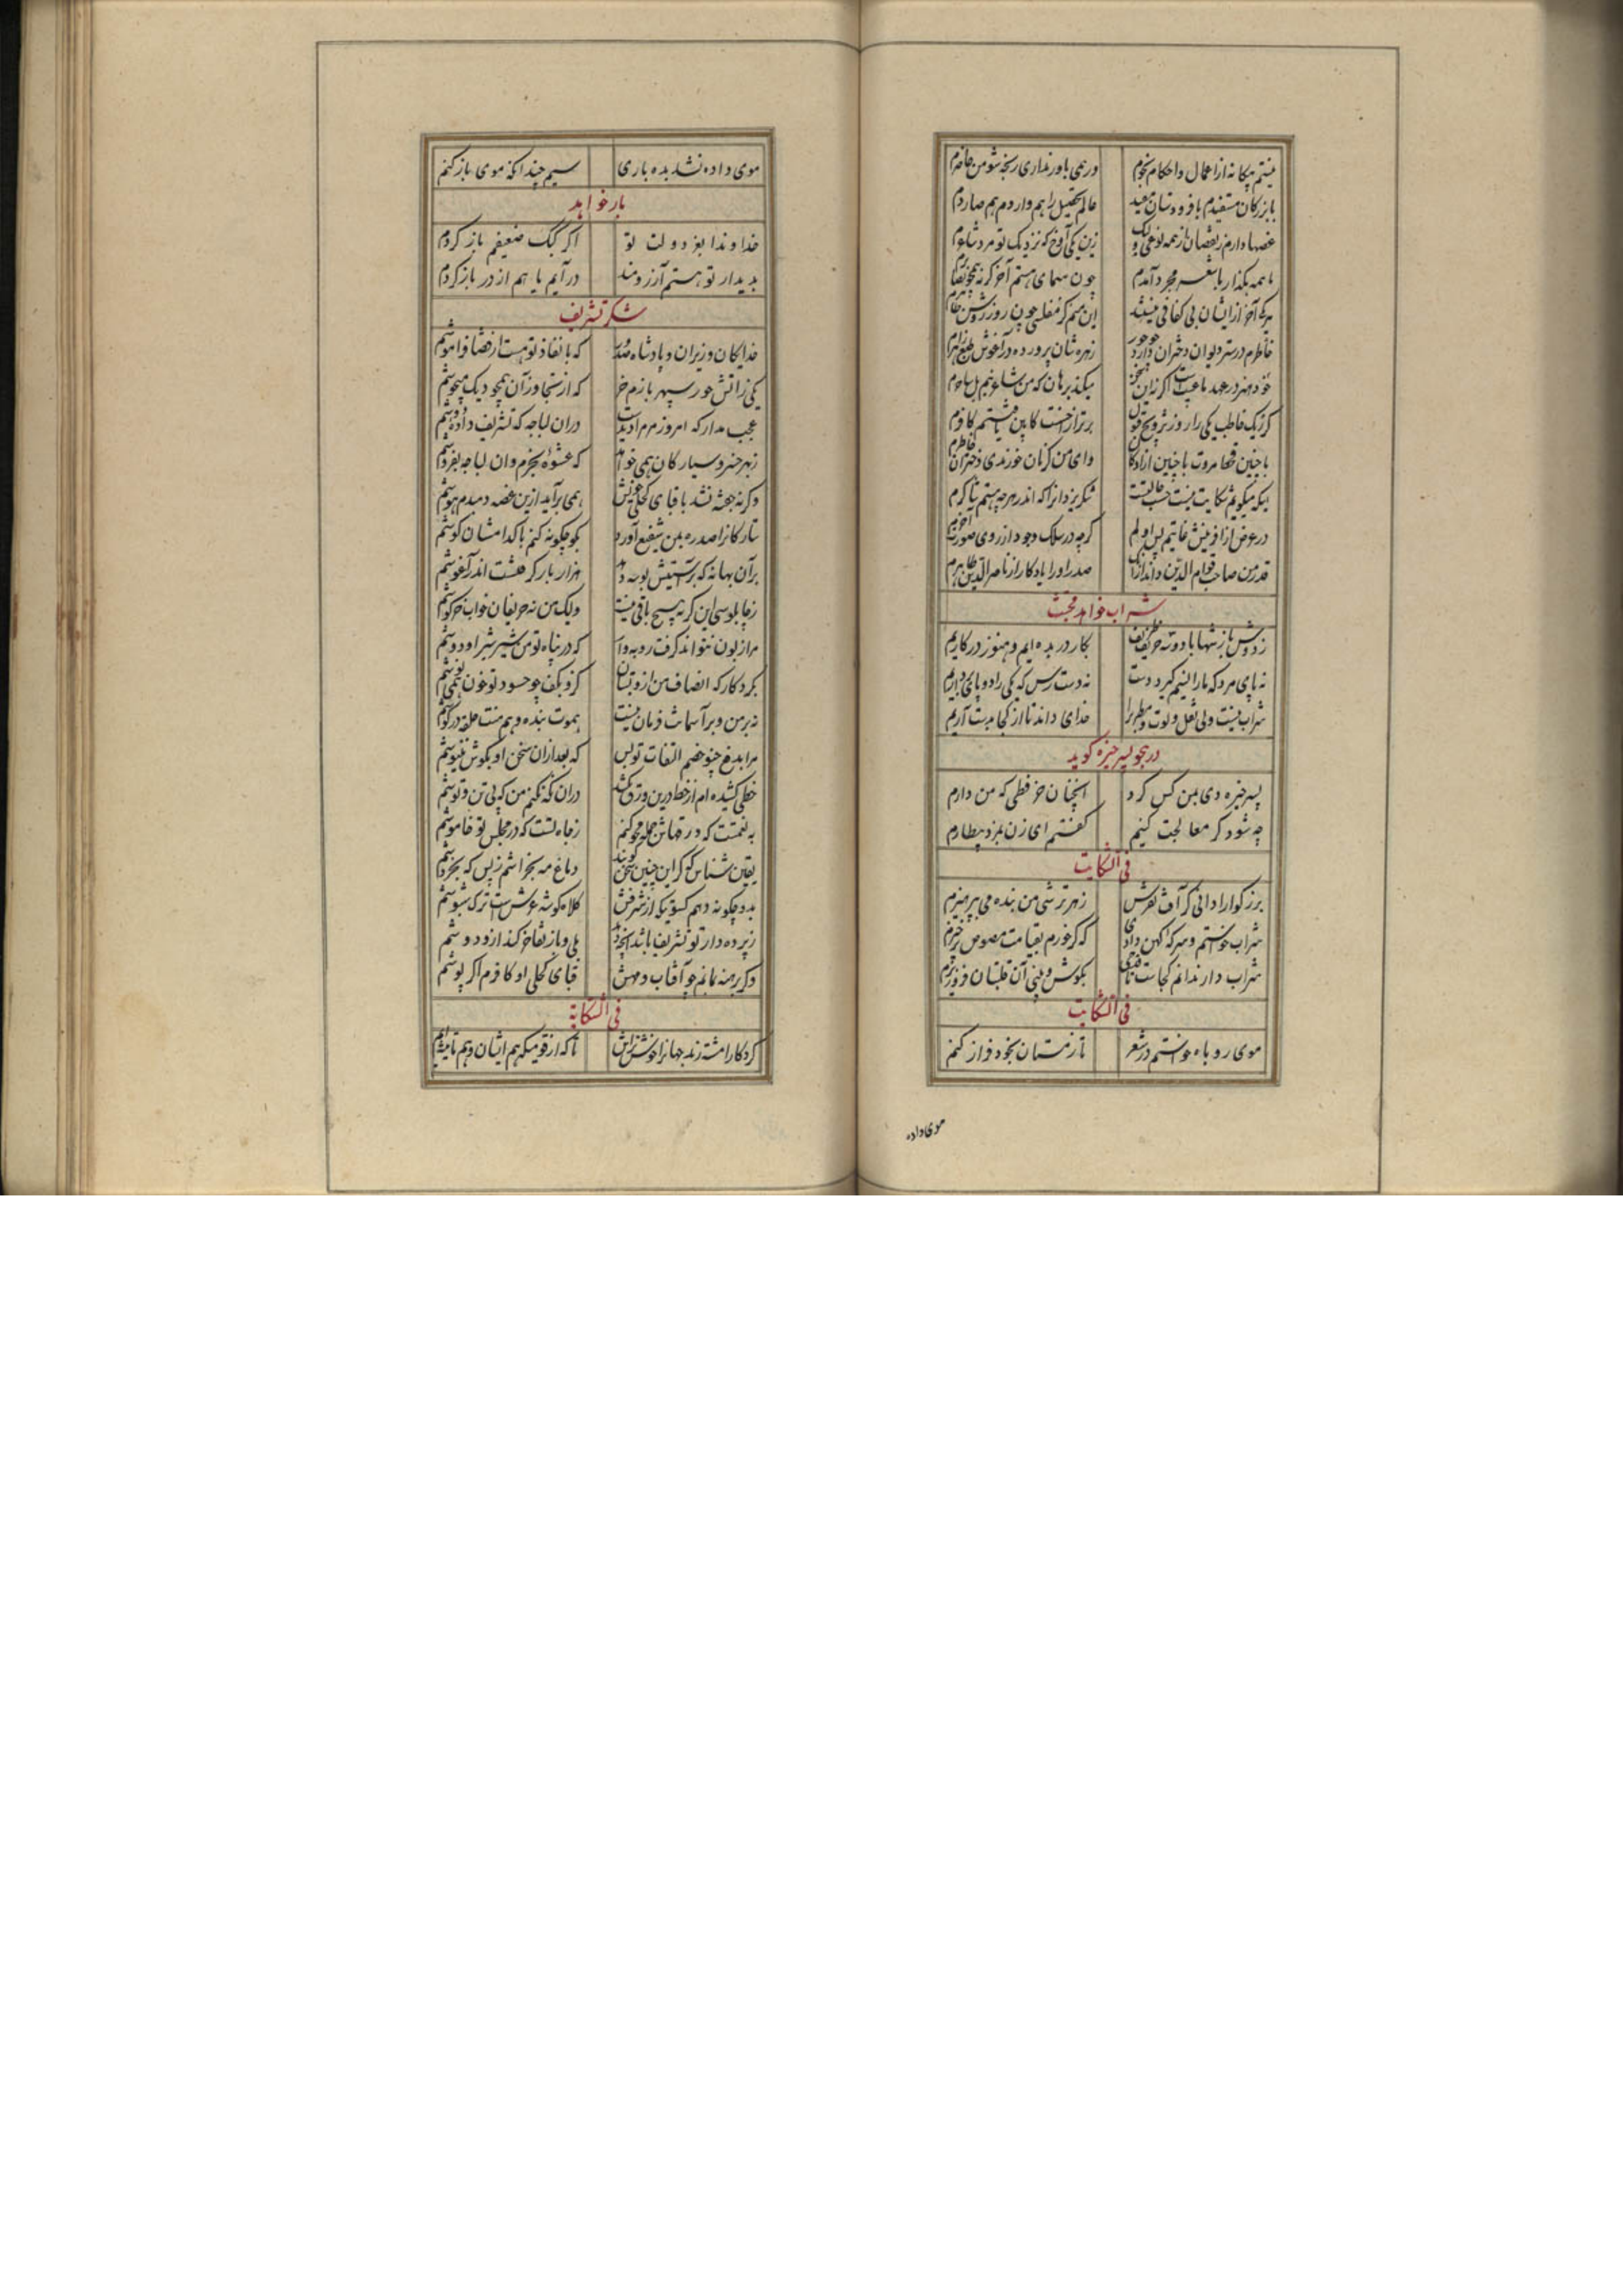 نیستم بیکانه از اعمال و احکام نجوم ورهمی باور نداری رنجه شو من حاضرم
با بزرکان مستفیدم با فرودستان مفید عالم تحصیل را هم واردم هم صادرم
غصها دارم ز نقصان از همه نوعی ولیک زین یکی آوخ که نزدیک تو مرد شاعرم
این همه بکذار با شعر مجرد آمدم چون سنائی هستم آخر کرنه همچون صابرم
هریکی آخر از ایشان بی کفافی نیستند این منم کز مفلسی چون روز روشن ظاهرم
خاطرم در ستر دیوان دختران دارد چو حور زهره شان پرورده در آغوش طبع زاهرم
خود هنر در عهد ما عیبست اکر نه این سخن میکند برهان که من شاعر نیم بل ساحرم
کر یکی خاطب یکی را روز تزویج قبول برتر از احسنت کابین یافتستم کافرم
با چنین قحط مروت با چنین آزادکان وای من کر نان خورندی دختران خاطرم
اینکه میکویم شکایت نیست شرح حالتست شکر یزدانرا که اندر هرچه هستم شاکرم
در عوض از آفرینش غایتم پس اولم کرچه در سلک وجود از روی صورت آخرم
قدر من صاحب قوام الدین داند از آنک صدر او را یادکار از ناصر الدین طاهرم
شراب خواهد بخت
ز دوش باز شبها با دو سه حریف ظریف بکار در بده ایم و هنوز در کاریم
نه پای مرد که ما را نیم کیرد دست نه دست رس که یکی را دو پای در آریم
شراب نیست ولی نقل و لوت و مطرب را خدای داند تا از کجا بدست آریم
در هجو پسر خیزه کوید
پسر خیزه دی بمن کس کرد آنچنان خر فطی که من دارم
چه شود کر معالجت کنیم کفتم ای زن بمزد بیطارم
فی الشکایت
بزرکوارا دانی کز آفت نقرس ز هر ترشی من بنده می بپرهیزم
شراب خواستم و سرکه کهن دادی که کر خورم بقیامت مصوص برخیزم
شراب دار ندانم کجاست تا قدحی بکوش و بینی آن قلتبان فرو ریزم
فی الشکایت
موی روباه خواستم در شعر تا زمستان بخود فراز کنم
موی داده
موی داده نشد بده باری سیم چندانکه موی باز کنم
بار خواهد
خداوندا بفر دولت تو اکر کبک ضعیفم باز کردم
بدیدار تو هستم آرزومند درآیم یا هم از در باز کردم
شکر تشریف
خدایکان وزیران و پادشاه صدور که با نفاذ تو هست از قضا فراموشم
یکی ز آتش جور سپهر بازم خر که از تجاوز آن همچو دیک میجوشم
عجب مدار که امروز مر مرا دیدست در آن لباجه که تشریف داده ای دوشم
ز بهر خسرو سیارکان همی خواهد که عشوه بخرم وان لباجه بفروشم
وکرنه جفته نشد با قبای کحلی خویش همی برآید ازین غصه دمبدم هوشم
ستارکانرا صدره بمن شفیع آورد بکو چکونه کنم با کدامشان کوشم
بر آن بهانه که بر آستینش بوسه دهد هزار بار کرفتست اندر آغوشم
ز چاپلوسی این کربه هیچ باقی نیست ولیک من نه حریفان خواب خرکوشم
مرا زبون نتواند کرفت روبه وار که در پناه تو من شیر شیر او دوشم
بکردکار که انصاف من ازو بستان کزو بکف چو حسود تو خون نمی نوشم
نه بر من و بر آسمانت فرمان نیست هموت بنده و هم منت حلقه در کوشم
مرا بدفع چنو خصم التفات تو بس که بعد از آن سخن او بکوش ننیوشم
خطی کشیده ام از خط درین ورق بکشد در آن نکه نکنم من که بی تن و توشم
به نعمتت که ورقهاش جمله محو کنم ز جاه تست که در مجلس تو خاموشم
یقین شناس که کر این چنین سخن کوید دماغ مه بخراشم ز بس که بخروشم
بدو چکونه دهم کسوتیکه از شرفش کلاه کوشه عرش است ترک شب پوشم
ز پرده دار تو تشریف باشد آنچه دهد بلی و باز تفاخر کند ازو دوشم
وکر برهنه بمانم چو آفتاب و مهش قبای کحلی او کافرم اکر پوشم
فی الشکایة
کردکارا مشته رندیده جهانرا خوش تراش تا که از قومیکه هم ایشان و هم ما تیشه ایم